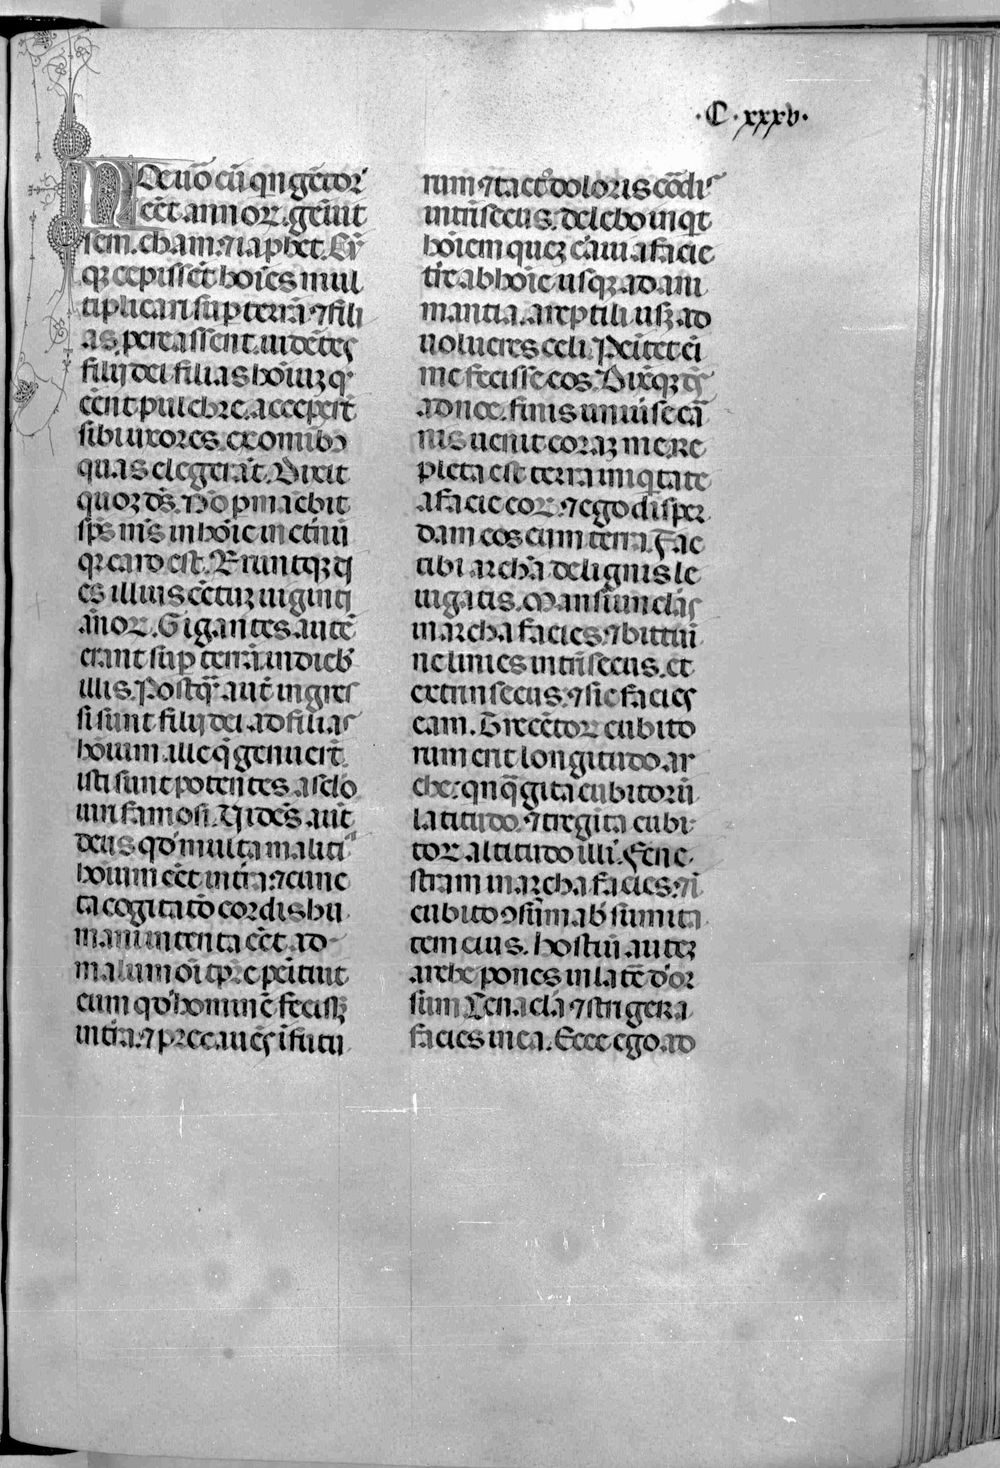 ·C·xxxv·
Noe uo cū qngētor
eēt annoꝝ. genuit
sem. cham. ⁊ iaphet. Cū
qꝫ cepissēt hoīes mul
tiplicari sup terrā ⁊ fili
as pcreassent. uidētes
filij dei filias hoīuꝫ qꝛ
eēnt pulchre. acceperūt
sibi uxores. ex omnibꝰ
quas elegerāt. Dixit
quoꝫ dꝰs. Nō pmanebit
sps mꝰs in hoīe in etnū
qꝛ caro est. Eruntqꝫ di
es illius cētuꝫ uiginti
ānoꝝ. Gigantes autē
erant sup terrā in dieb
illis. Postqꝫ aūt ingres
si sunt filij dei ad filias
hoīum. illeqꝫ genuerūt
isti sunt potentes. a sclo
uiri famosi. Uidēs aūt
deus qd multa malicia
hoīum eēt in tra. ⁊ cunc
ta cogitatō cordis hu
mani intenta eēt ad
malum oī tpre penituit
eum qd hominē fecissꝫ
in tra. ⁊ precauēs ī futu
rum. ⁊ tactꝰ doloris cordis
intrīsecus. delebo inqt
hoīem queꝫ creaui a facie
tre ab hoīe usqꝫ ad ani
mantia. a reptili usqꝫ ad
uolucres celi. Penitet ei
me fecisse eos. Dixitqꝫ dꝰs
ad noe. finis uniuse car
nis uenit coraꝫ me. Re
pleta est terra iniqtate
a facie eoꝝ. ⁊ ego disper
dam eos cum terra. Fac
tibi archā de lignis le
uigatis. Mansiunclas
in archa facies. ⁊ bittui
ne linies intrīsecus. et
extrinsecus. ⁊ sic facies
eam. Trecētoꝝ cubito
rum erit longitudo ar
che: qnqgīta cubitorū
latitudo. ⁊ tregīta cubi
toꝝ altitudo illi. Fene
stram in archa facies. ⁊ ī
cubito ꝯsūmab sūmita
tem eius. hostiū auteꝫ
arche pones in latē dor
sum Cenacla ⁊ stristega
facies in ea. Ecce ego ad